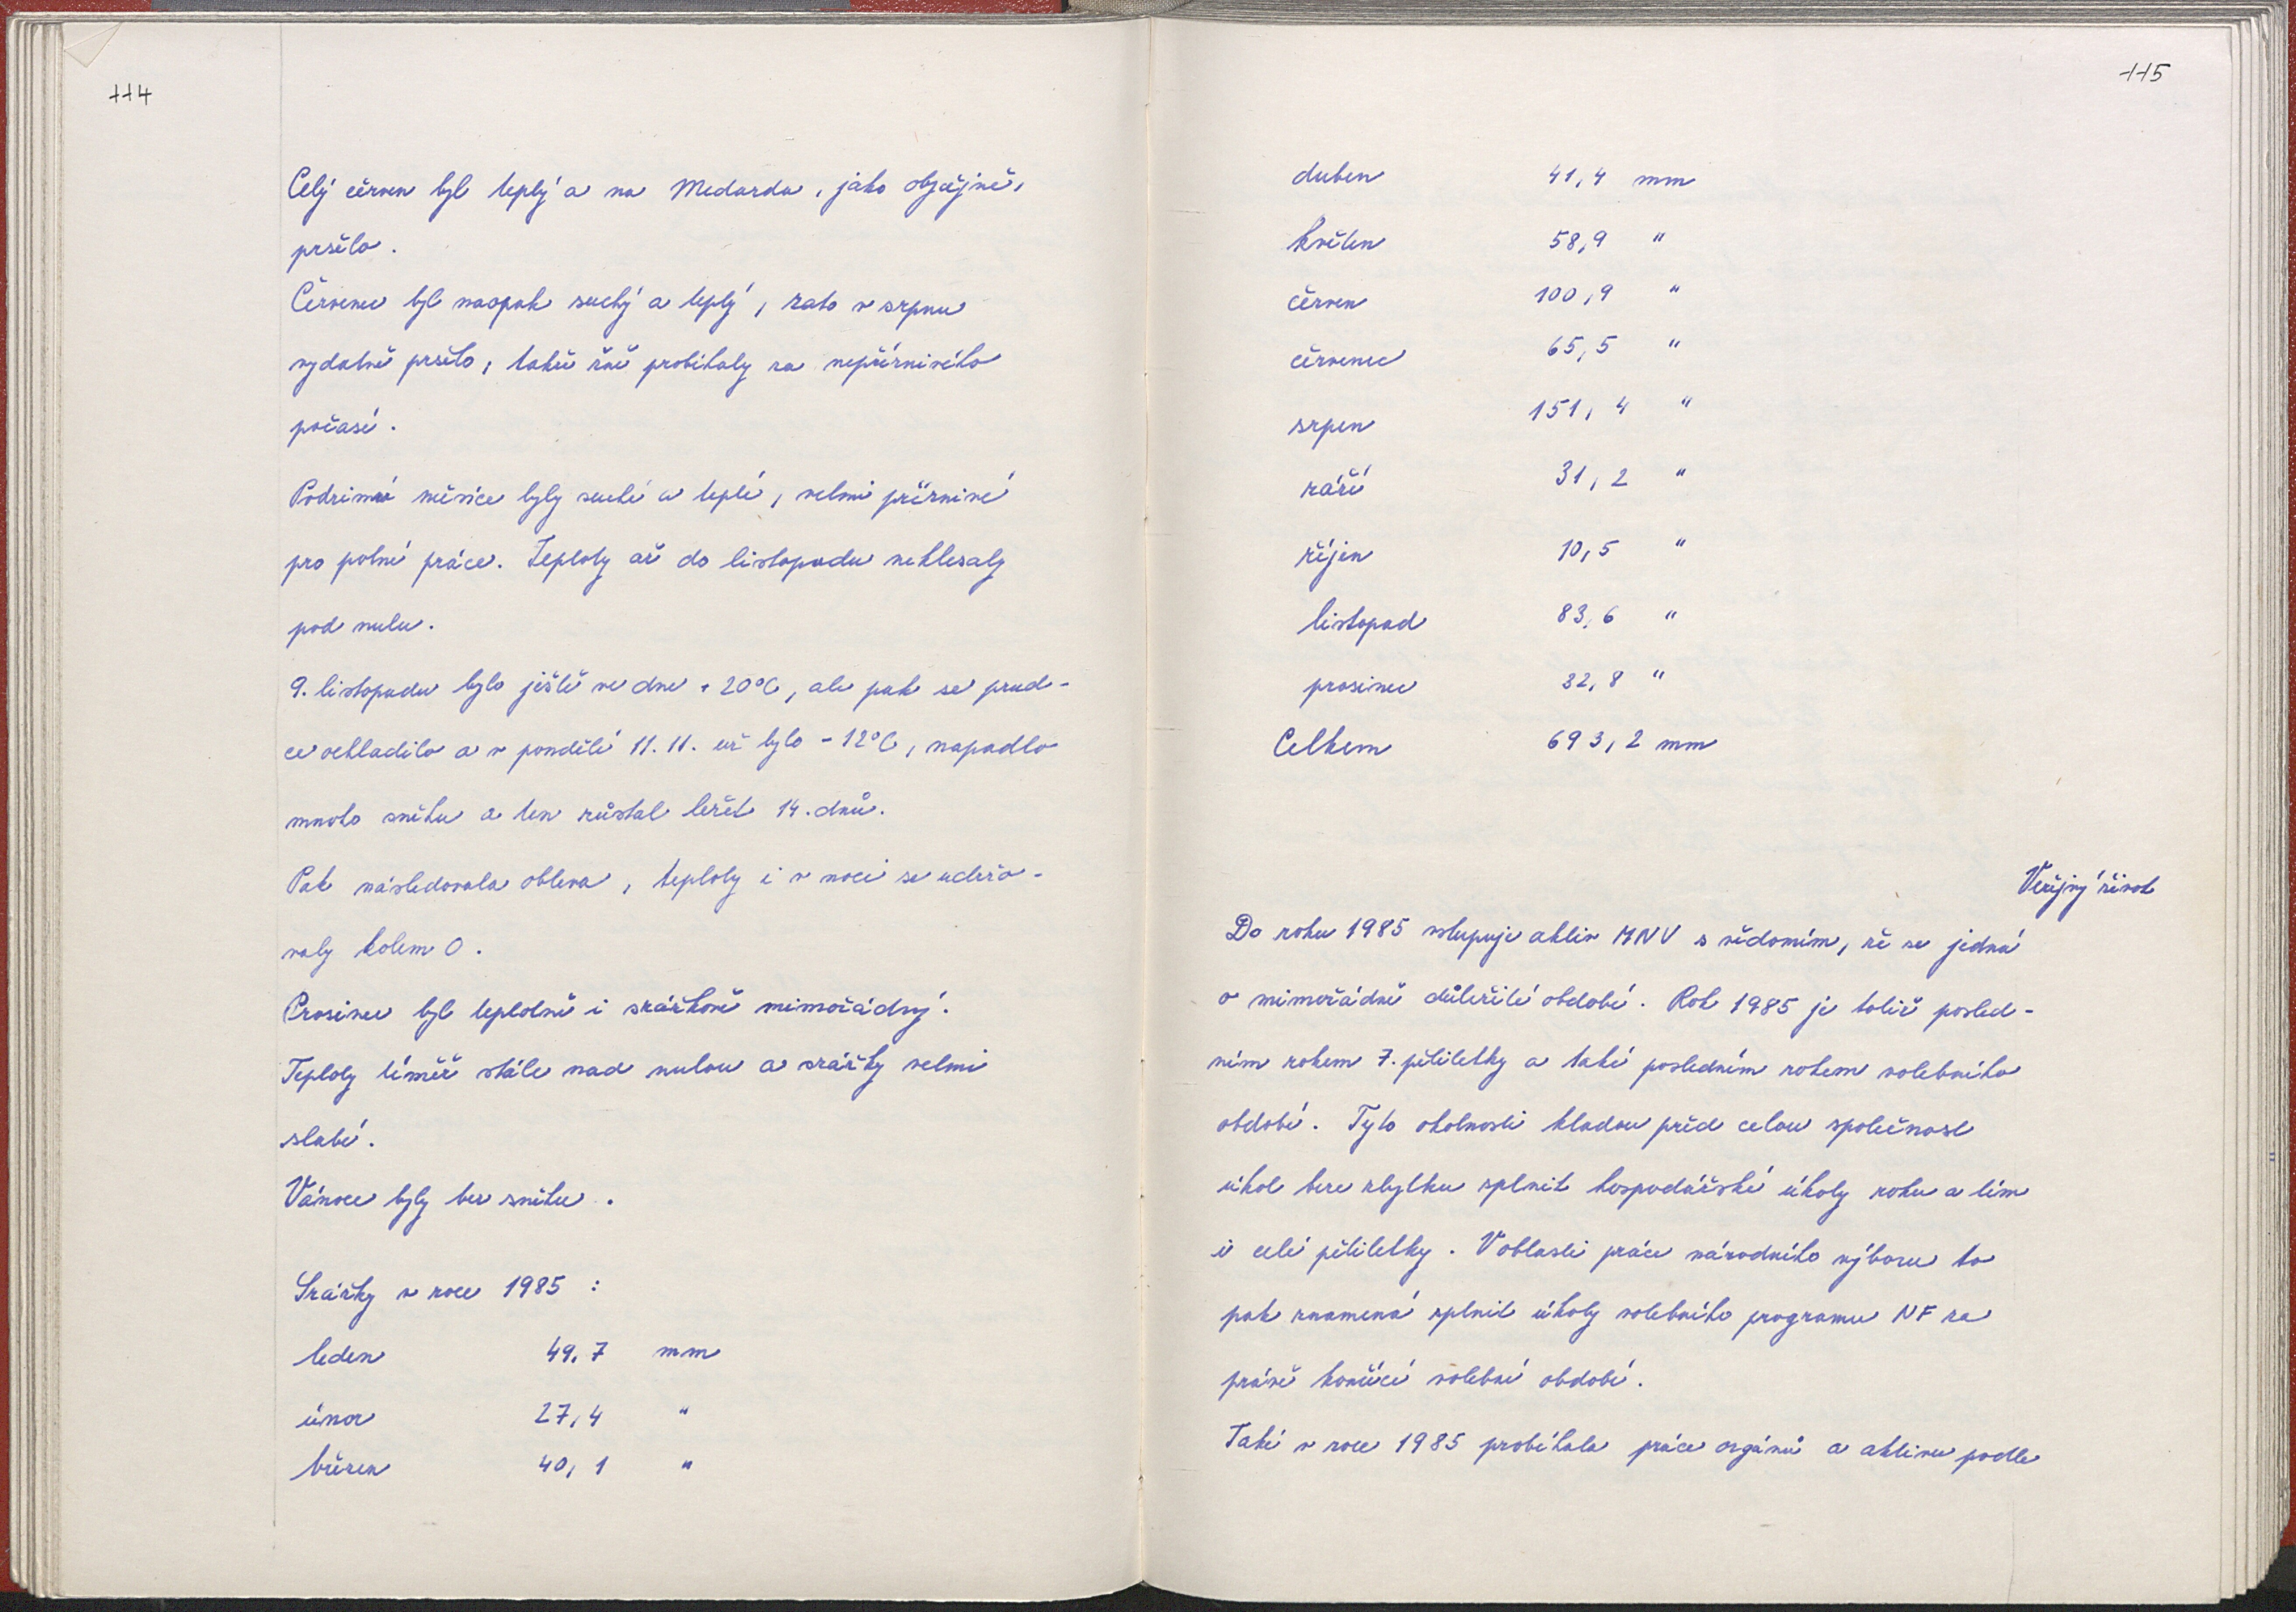 114
Celý červen byl teplý a na Medarda, jako obyčejně,
pršelo.
Červenec byl naopak suchý a teplý, zato v srpnu
vydatně pršelo, takže žně probíhaly za nepříznivého
počasí.
Podzimní měsíce byly suché a teplé, velmi příznivé
pro polní práce. Teploty až do listopadu neklesaly
pod nulu.
9. listopadu bylo ještě ve dne + 20°C, ale pak se prud-
ce ochladilo a v pondělí 11. 11. už bylo - 12°C, napadlo
mnoho sněhu a ten zůstal ležet 14. dnů.
Pak následovala obleva, teploty i v noci se udržo-
valy kolem 0.
Prosinec byl teplotně i srážkově mimořádný.
Teploty téměř stále nad nulou a srážky velmi
slabé.
Vánoce byly bez sněhu.
Srážky v roce 1985 :
leden 49,7 mm
únor 27,4 "
březen 40,1 "
115
duben 41,4 mm
květen 58,9 "
červen 100,9 "
červenec 65,5 "
srpen 151,4 "
září 31,2 "
říjen 10,5 "
listopad 83,6 "
prosinec 32,8 "
Celkem 693,2 mm
Veřejný život
Do roku 1985 vstupuje aktiv MNV s vědomím, že se jedná
o mimořádně důležité období. Rok 1985 je totiž posled-
ním rokem 7. pětiletky a také posledním rokem volebního
období. Tyto okolnosti kladou před celou společnost
úkol beze zbytku splnit hospodářské úkoly roku a tím
i celé pětiletky. V oblasti práce národního výboru to
pak znamená splnit úkoly volebního programu NF za
právě končící volební období.
Také v roce 1985 probíhala práce orgánů a aktivu podle